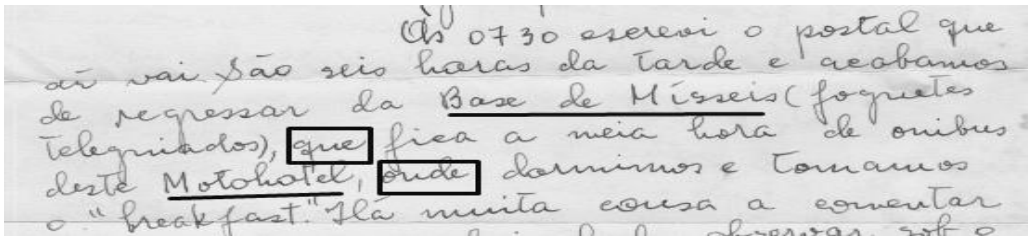 Às 0730 escrevi o postal que
aí vai. São seis horas da tarde e acabamos
de regressar da Base de Mísseis (foguetes
teleguiados), que fica a meia hora de onibus
deste Motohotel, onde dormimos e tomamos
o "breakfast." Há muita cousa a comentar
observar sob o